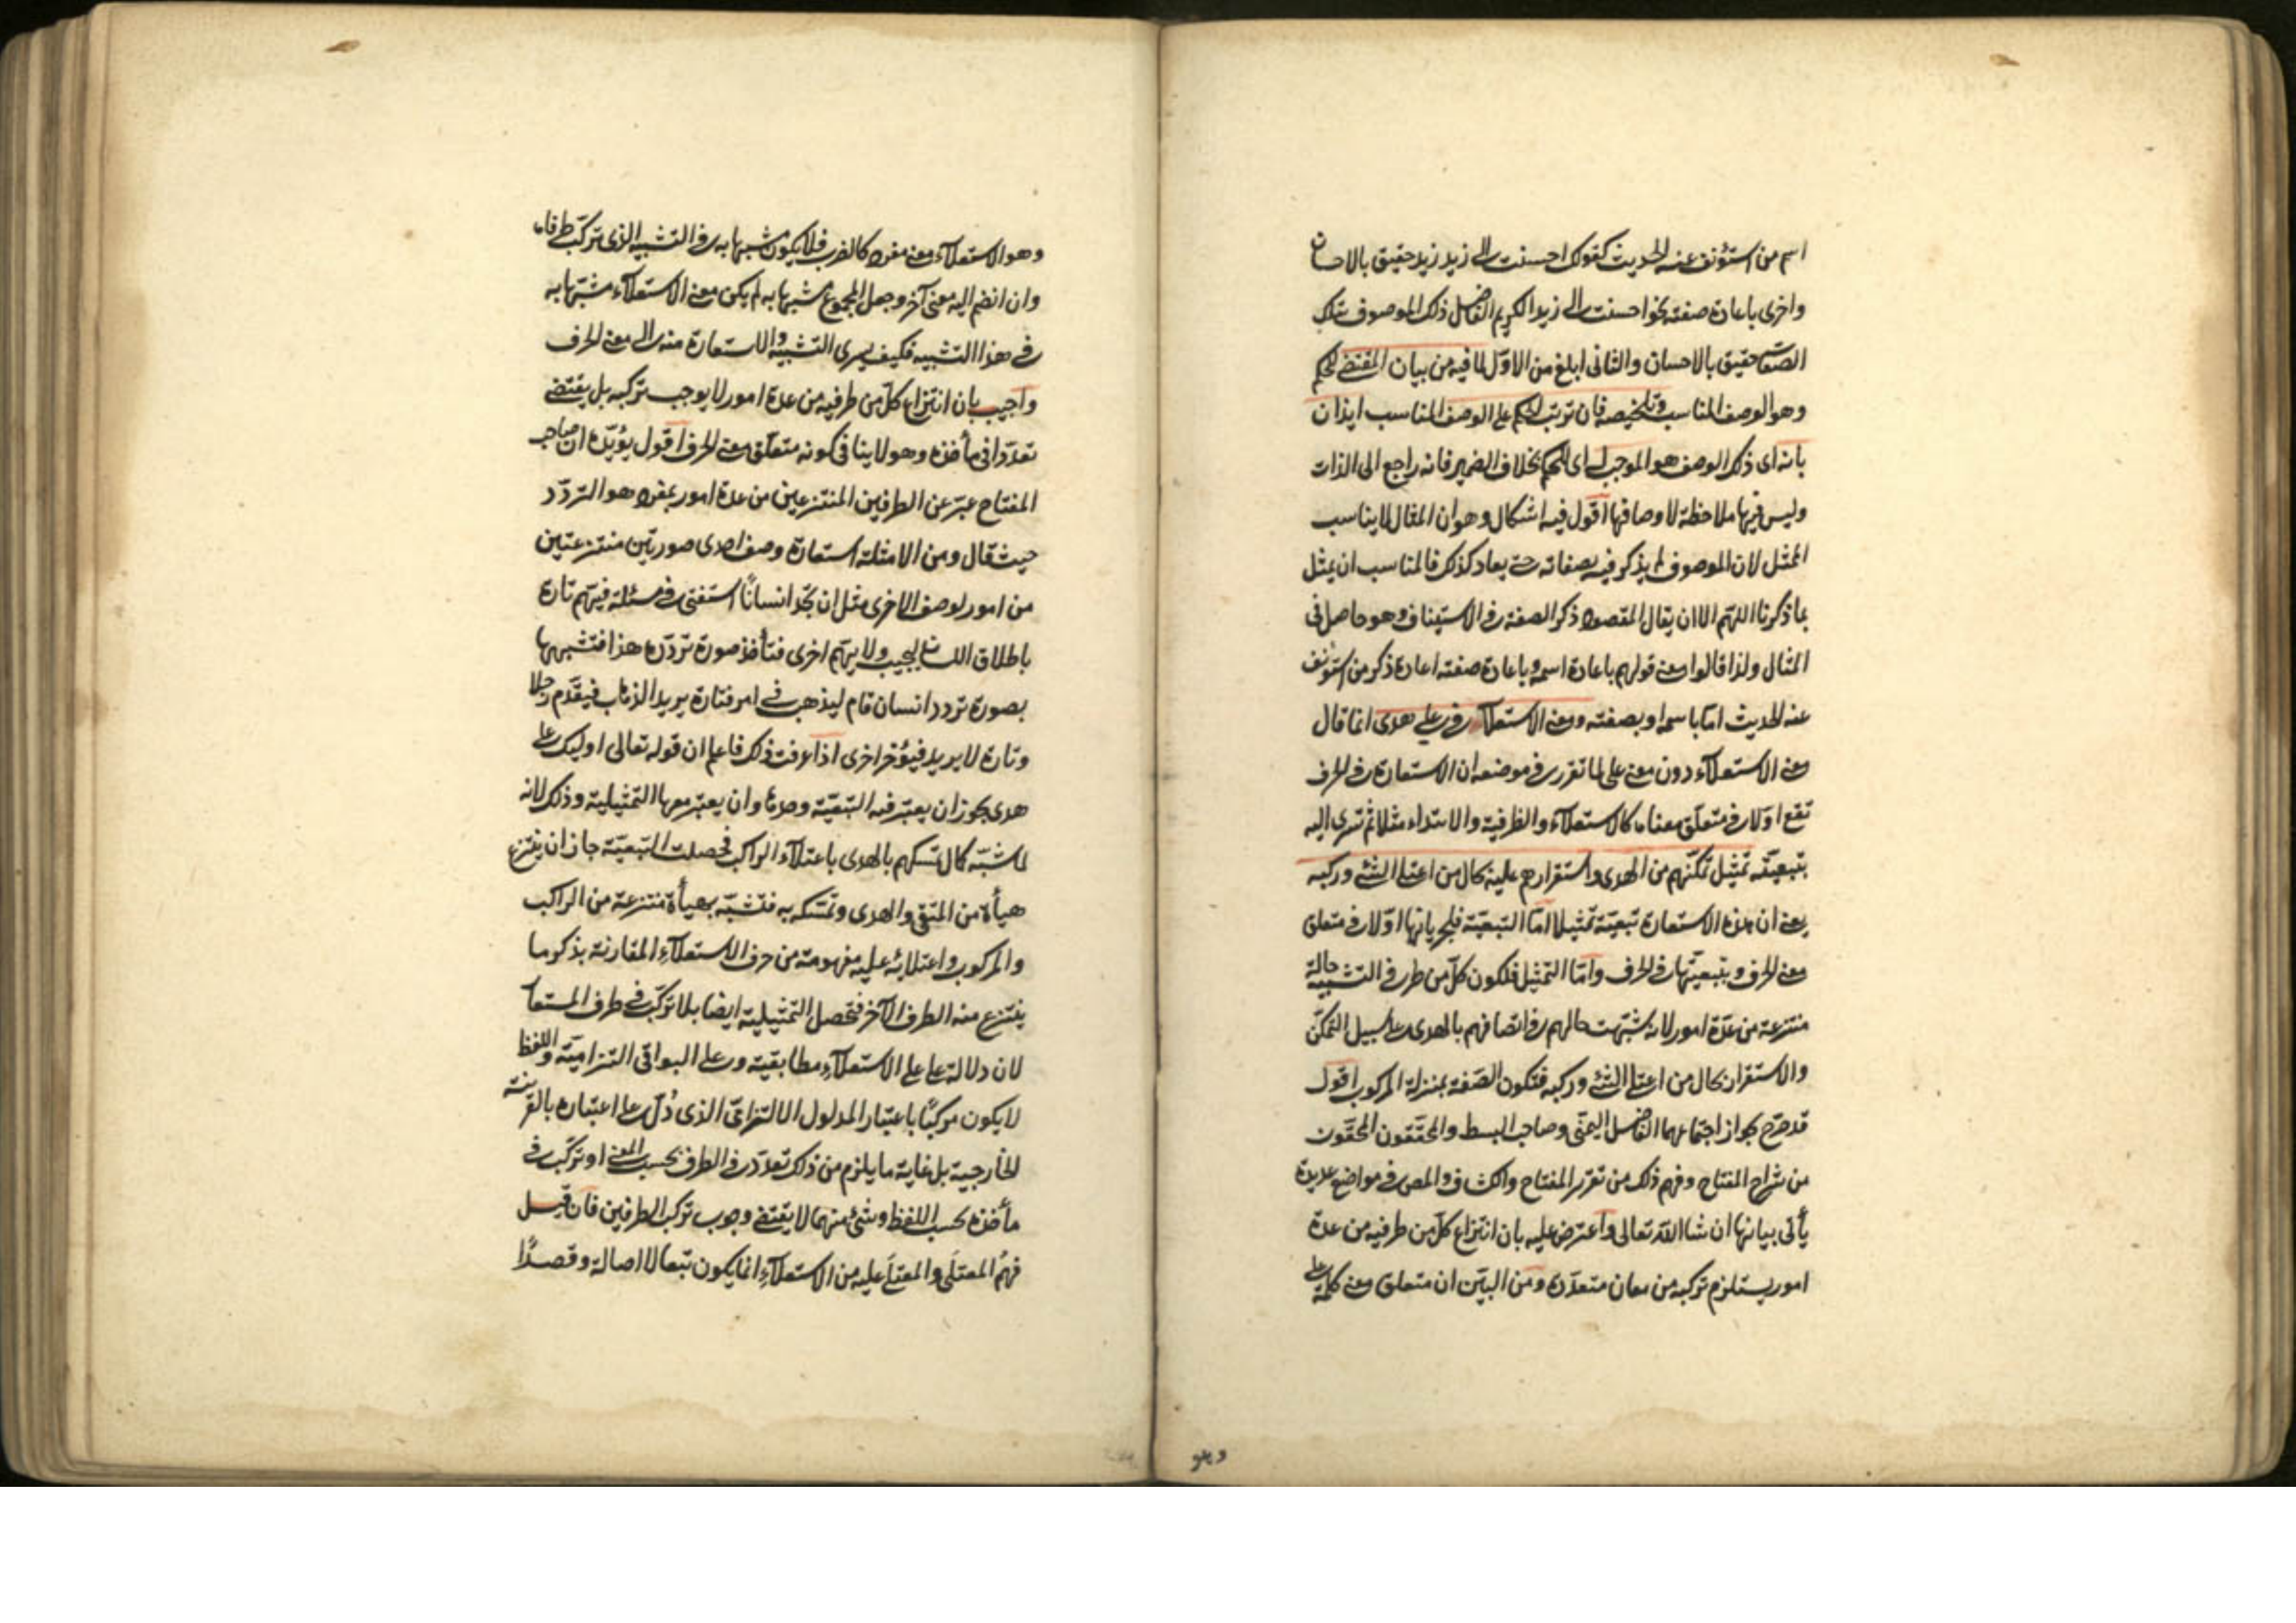 اسم من استؤنف عنه الحديث كقولك احسنت الى زيد زيد حقيق بالاحسان
واخرى باعادة صفته نحو احسنت الى زيد الكريم الفاضل ذلك الموصوف بتلك
الصفات حقيق بالاحسان والثاني ابلغ من الاول لما فيه من بيان المقتضي للحكم
وهو الوصف المناسب وتلخيصه فان ترتب الحكم على الوصف المناسب ايذان
بانه اى ذلك الوصف هو الموجب له اى للحكم بخلاف الضمير فانه راجع الى الذات
وليس فيها ملاحظة لاوصافها اقول فيه اشكال وهو ان المثال لا يناسب
الممثل لان الموصوف لم يذكر فيه بصفاته حتى يعاد كذلك فالمناسب ان يمثل
بما ذكرنا اللهم الا ان يقال المقصود ذكر الصفة في الاستيناف وهو حاصل في
المثال ولذا قالوا معنى قولهم باعادة اسمه وباعادة صفته اعادة ذكر من استؤنف
عنه الحديث اما باسمه او بصفته ومعنى الاستعلاء في على هدى انما قال
معنى الاستعلاء دون معنى على لما تقرر في موضعه ان الاستعارة في الحرف
تقع اولا في متعلق معناه كالاستعلاء والظرفية والابتداء مثلا ثم تسرى اليه
بتبعيته تمثيل تمكنهم من الهدى واستقرارهم عليه بحال من اعتلى الشئ وركبه
يعنى ان هذه الاستعارة تبعية تمثيلا اما التبعية فلجريانها اولا في متعلق
معنى الحرف وبتبعيتها في الحرف واما التمثيل فلكون كل من طرفى التشبيه حالة
منتزعة من عدة امور لانه شبهت حالهم في اتصافهم بالهدى على سبيل التمكن
والاستقرار بحال من اعتلى الشئ وركبه فتكون الصفة بمنزلة المركوب اقول
قد صرح بجواز اجتماعهما الفاضل اليمنى وصاحب البسط والمحققون المحقون
من شراح المفتاح وفهم ذلك من تقرير المفتاح والكشاف والمص في مواضع عديدة
يأتى بيانها ان شا الله تعالى واعترض عليه بان انتزاع كل من طرفيه من عدة
امور يستلزم تركبه من معان متعددة ومن البين ان متعلق معنى كلمة على
وهو
وهو الاستعلاء معنى مفرد كالضرب فلا يكون مشبها به في التشبيه الذى تركب طرفاه
وان انضم اليه معنى آخر وجعل المجموع مشبها به لم يكن معنى الاستعلاء مشبها به
في هذا التشبيه فكيف يسرى التشبيه والاستعارة منه الى معنى الحرف
واجيب بان انتزاع كل من طرفيه من عدة امور لا يوجب تركبه بل يقتضى
تعددا في مأخذه وهو لا ينافى كونه متعلق معنى الحرف اقول يؤيده ان صاحب
المفتاح عبر عن الطرفين المنتزعين من عدة امور بمفرد هو التردد
حيث قال ومن الامثلة استعارة وصف احدى صورتين منتزعتين
من امور لوصف الاخرى مثل ان تجد انسانا استفتى في مسئلة فيهم تارة
باطلاق اللسان ليجيب ولا يهم اخرى فتأخذ صورة تردده هذا فتشبهها
بصورة تردد انسان قام ليذهب في امر فتارة يريد الذهاب فيقدم رجلا
وتارة لا يريد فيؤخر اخرى اذا عرفت ذلك فاعلم ان قوله تعالى اوليك على
هدى يجوز ان يعتبر فيه التبعية وحدها وان يعتبر معها التمثيلية وذلك لانه
لما شبه كمال تمسكهم بالهدى باعتلاء الراكب فحصلت التبعية جاز ان ينتزع
هيأة من المتقى والهدى وتمسكه به فتشبه بهيأة منتزعة من الراكب
والمركوب واعتلائه عليه مفهومة من حرف الاستعلاء المقارنة بذكر ما
ينتزع منه الطرف الآخر فتحصل التمثيلية ايضا بلا تركب في طرف المستعا
لان دلالة على على الاستعلاء مطابقية وعلى البواقى التزامية واللفظ
لا يكون مركبا باعتبار المدلول الالتزامى الذى دل على اعتباره بالقرينة
الخارجية بل غاية ما يلزم من ذلك تعدد في الطرف بحسب المعنى او تركب في
مأخذه بحسب اللفظ وشئ منهما لا يقتضى وجوب تركب الطرفين فان قيل
فهم المعتلى والمعتلى عليه من الاستعلاء انما يكون تبعا لا اصالة وقصدا